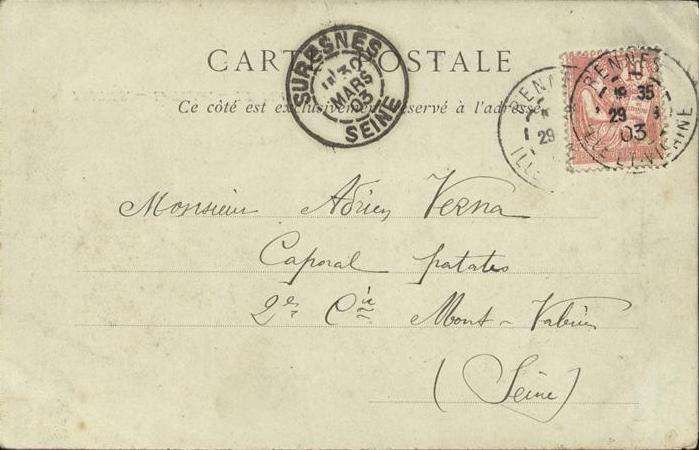 CARTE POSTALE
Ce côté est exclusivement réservé à l'adresse
SURESNES
30
MARS
03
SEINE
RENNES
18 35
29
03
ILLE-ET-VILAINE
Monsieur Adrien Verna
Caporal patates
2e Cie Mont-Valérien
(Seine)